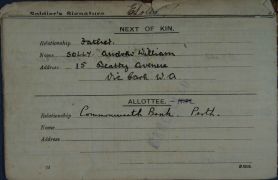 Soldier's Signature
NEXT OF KIN.
Relationship Father.
Name SOLLY Andrew William
Address 15 Beatty Avenue
Vic Park W.A
ALLOTTEE.
Relationship Commonwealth Bank. Perth.
Name
Address